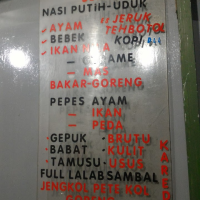 NASI PUTIH-UDUK
- AYAM - JERUK
- BEBEK TEHBOTOL
- IKAN KOPI
- MAS
BAKAR-GORENG
PEPES AYAM
- IKAN
- PEDA
- GEPUK - BRUTU
- BABAT - KULIT
- TAMUSU - USUS
FULL LALAB SAMBAL
JENGKOL PETE KOL